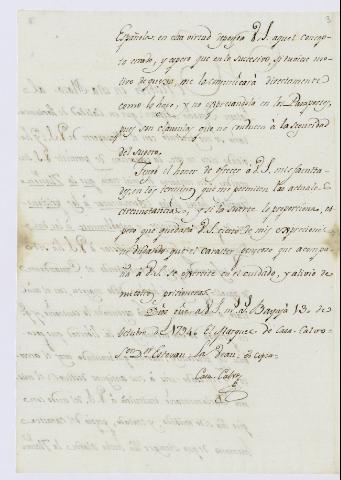 3
Españoles; en esta virtud depongo V.S. aquel concep-
to errado, y espero que en lo sucesivo, si tuviere mo-
tivo de quexa, me la comunicará directamente
como lo hago, y no expresandola en los Pasaportes,
pues son clausulas que no conducen à la seguridad
del sugeto.
Tengo el honor de ofrecer à V.S. mis faculta-
des en los terminos que me permiten las actuales
circunstancias, y si la suerte lo proporciona, es-
pero que quedará V.S. cierto de mis expresiones
no dudando que el caracter generoso que acompa-
ña à V.S. se exercite en el cuidado, y alivio de
nuestros prisioneros.
Dios gue. à V.S. m.s a.s Bayajá 13 de
Octubre de 1794. El Marques de Casa-Calvo-
S.or D.n Estevan La Veau. Es copia.
Casa-Calvo